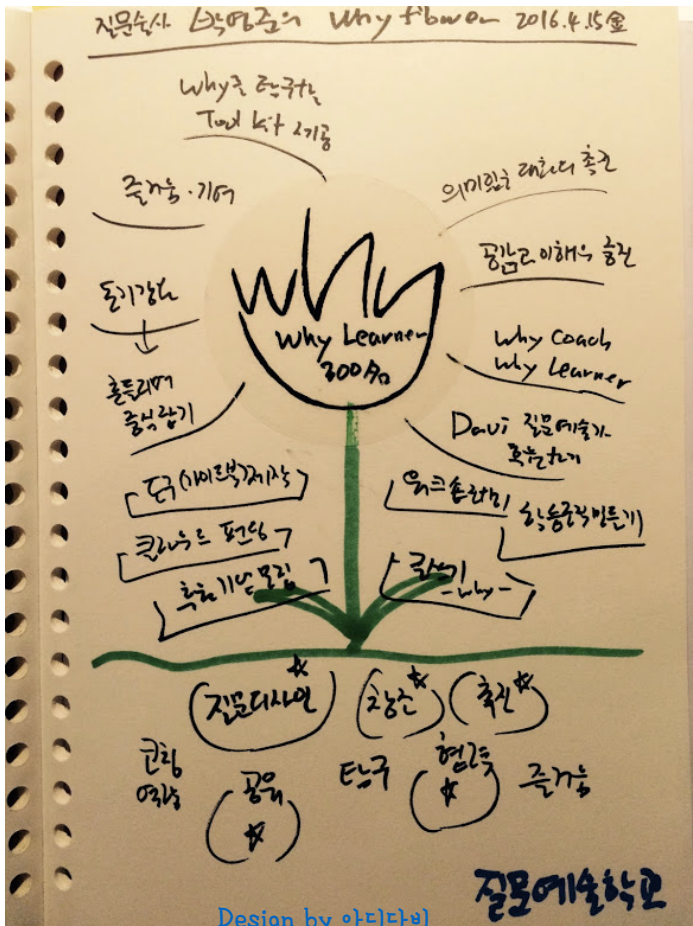 질문술사 박영준의 Why flower 2016.4.15 金
Why를 탐구하는
Tool kit 제공
즐거움·기여
의미있는 대화의 촉진
공감과 이해의 증진
동기강화
흔들리며
중심잡기
why
Why Learner
300명
Why Coach
Why Learner
Davi 질문예술가
훈련하기
도구(가이드북)제작
클라우드 펀딩
후원기업 모집
워크숍
학습공간만들기
-why-
질문디자인
창조
촉진
코칭
역량
공유
탐구
협력
즐거움
질문예술학교
Design by 아디다비